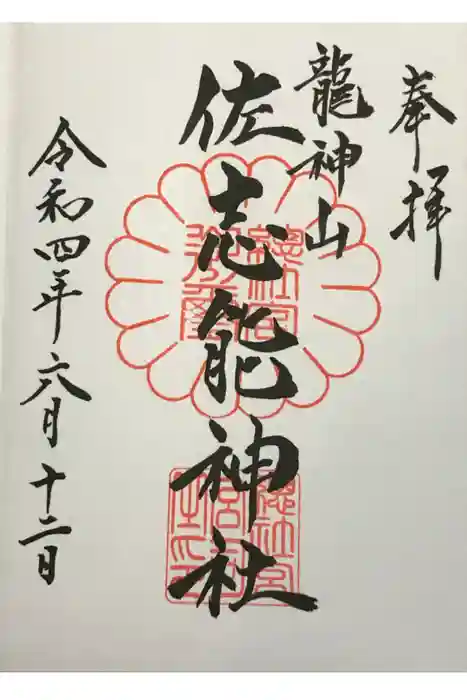 奉拝
龍神山
佐志能神社
令和四年六月十二日